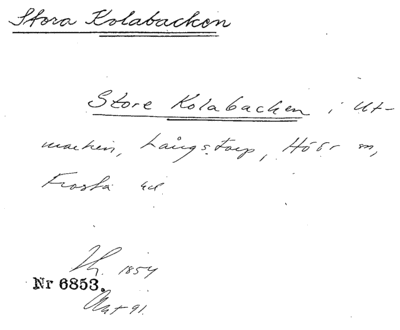 Stora Kolabacken
Store Kolabacken i Ut-
marken, Långstorp, Höör sn,
Frosta hd.
1854
Nr 6853.
91.